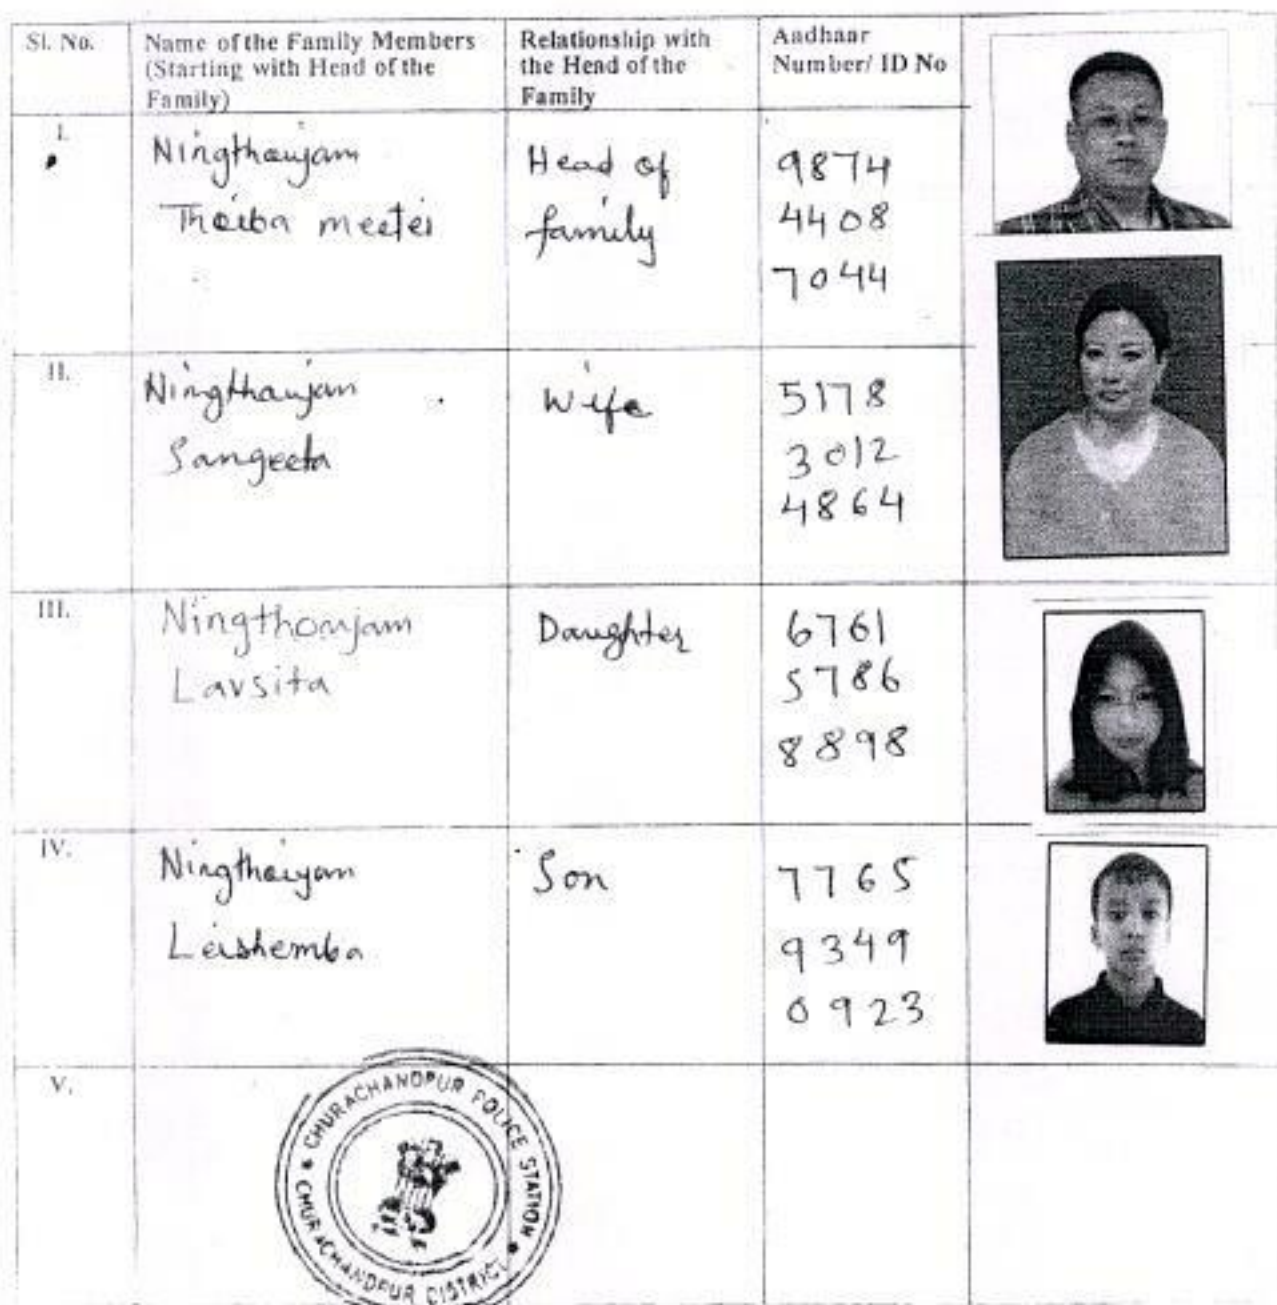 Sl. No.
Name of the Family Members
(Starting with Head of the
Family)
Relationship with
the Head of the
Family
Aadhaar
Number/ ID No
I.
Ningthoujam
Thoiba meetei
Head of
family
9874
4408
7044
II.
Ningthoujam
Sangeeta
Wife
5178
3012
4864
III.
Ningthoujam
Lavsita
Daughter
6761
5786
8898
IV.
Ningthoujam
Leishemba
Son
7765
9349
0923
V.
CHURACHANDPUR POLICE STATION
CHURACHANDPUR DISTRICT